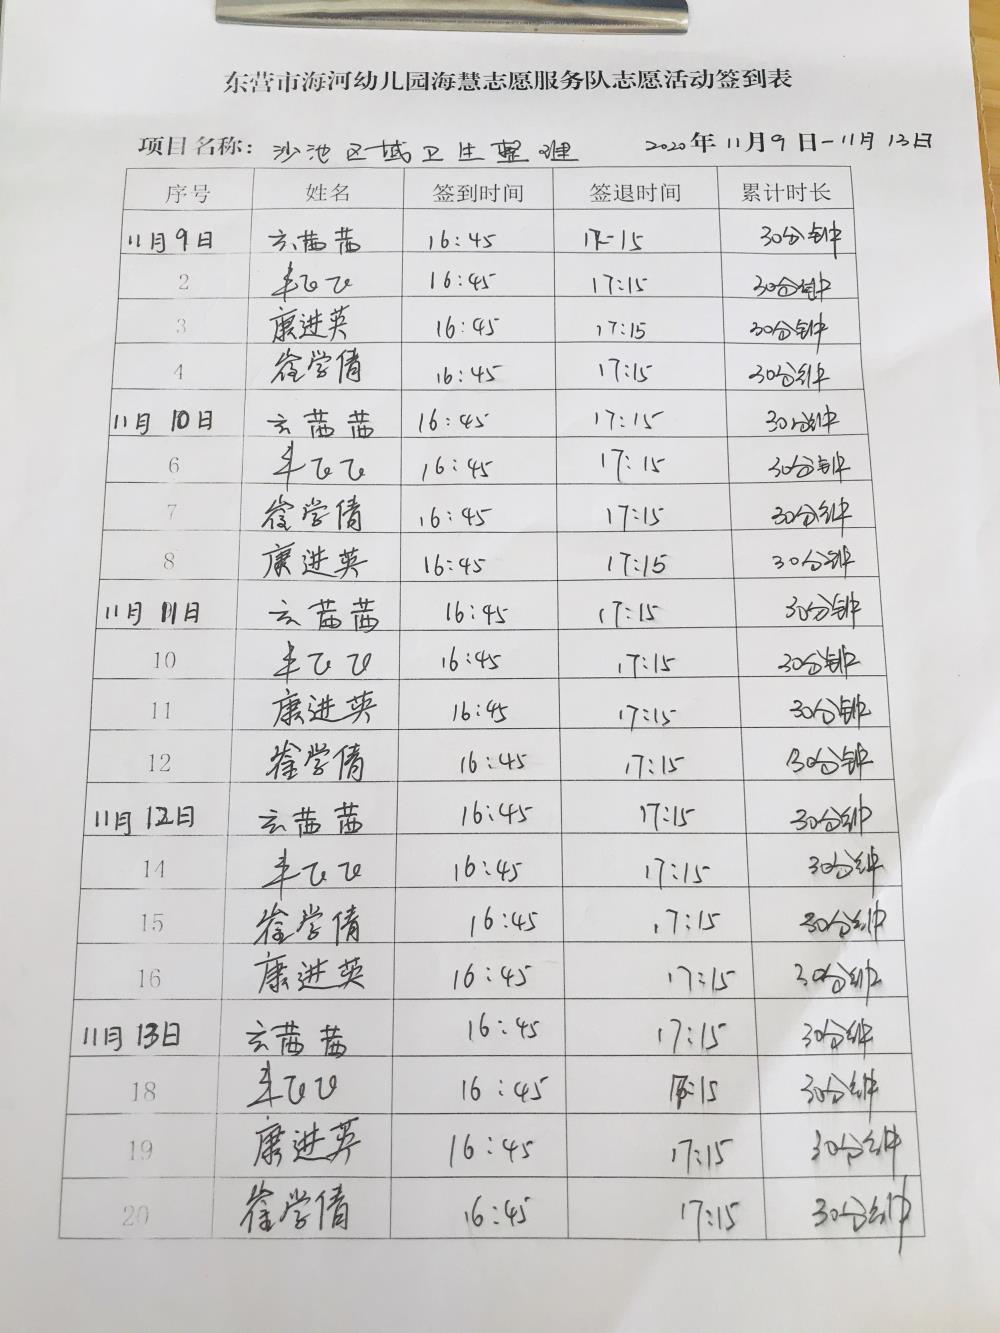 东营市海河幼儿园海慧志愿服务队志愿活动签到表
项目名称: 沙池区域卫生整理 2020年11月9日-11月13日
序号 姓名 签到时间 签退时间 累计时长
11月9日 云茜茜 16:45 17:15 30分钟
2 飞飞 16:45 17:15 30分钟
3 康进英 16:45 17:15 30分钟
4 学倩 16:45 17:15 30分钟
11月10日 云茜茜 16:45 17:15 30分钟
6 飞飞 16:45 17:15 30分钟
7 学倩 16:45 17:15 30分钟
8 康进英 16:45 17:15 30分钟
11月11日 云茜茜 16:45 17:15 30分钟
10 飞飞 16:45 17:15 30分钟
11 康进英 16:45 17:15 30分钟
12 学倩 16:45 17:15 30分钟
11月12日 云茜茜 16:45 17:15 30分钟
14 飞飞 16:45 17:15 30分钟
15 学倩 16:45 17:15 30分钟
16 康进英 16:45 17:15 30分钟
11月13日 云茜茜 16:45 17:15 30分钟
18 飞飞 16:45 17:15 30分钟
19 康进英 16:45 17:15 30分钟
20 学倩 16:45 17:15 30分钟